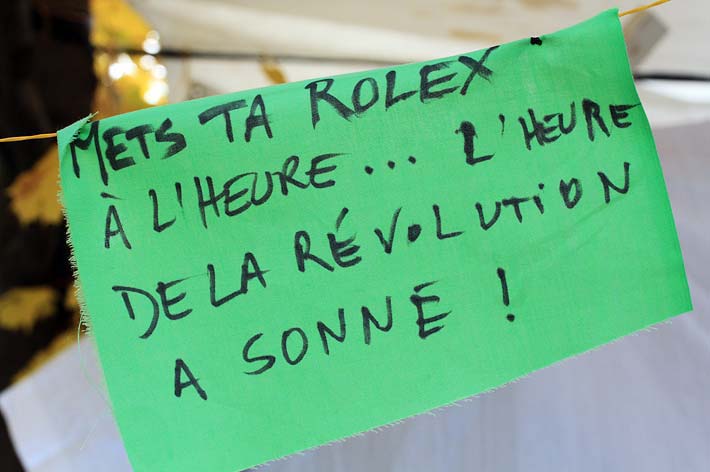 METS TA ROLEX
À L'HEURE... L'HEURE
DE LA RÉVOLUTION
A SONNÉ !